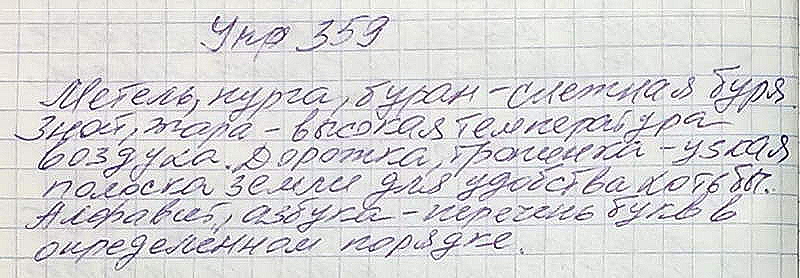 Упр 359
Метель, пурга, буран - снежная буря
Зной, жара - высокая температура
воздуха. Дорожка, тропинка - узкая
полоска земли для удобства хотьбы.
Алфавит, азбука - перечень букв в
определенном порядке.